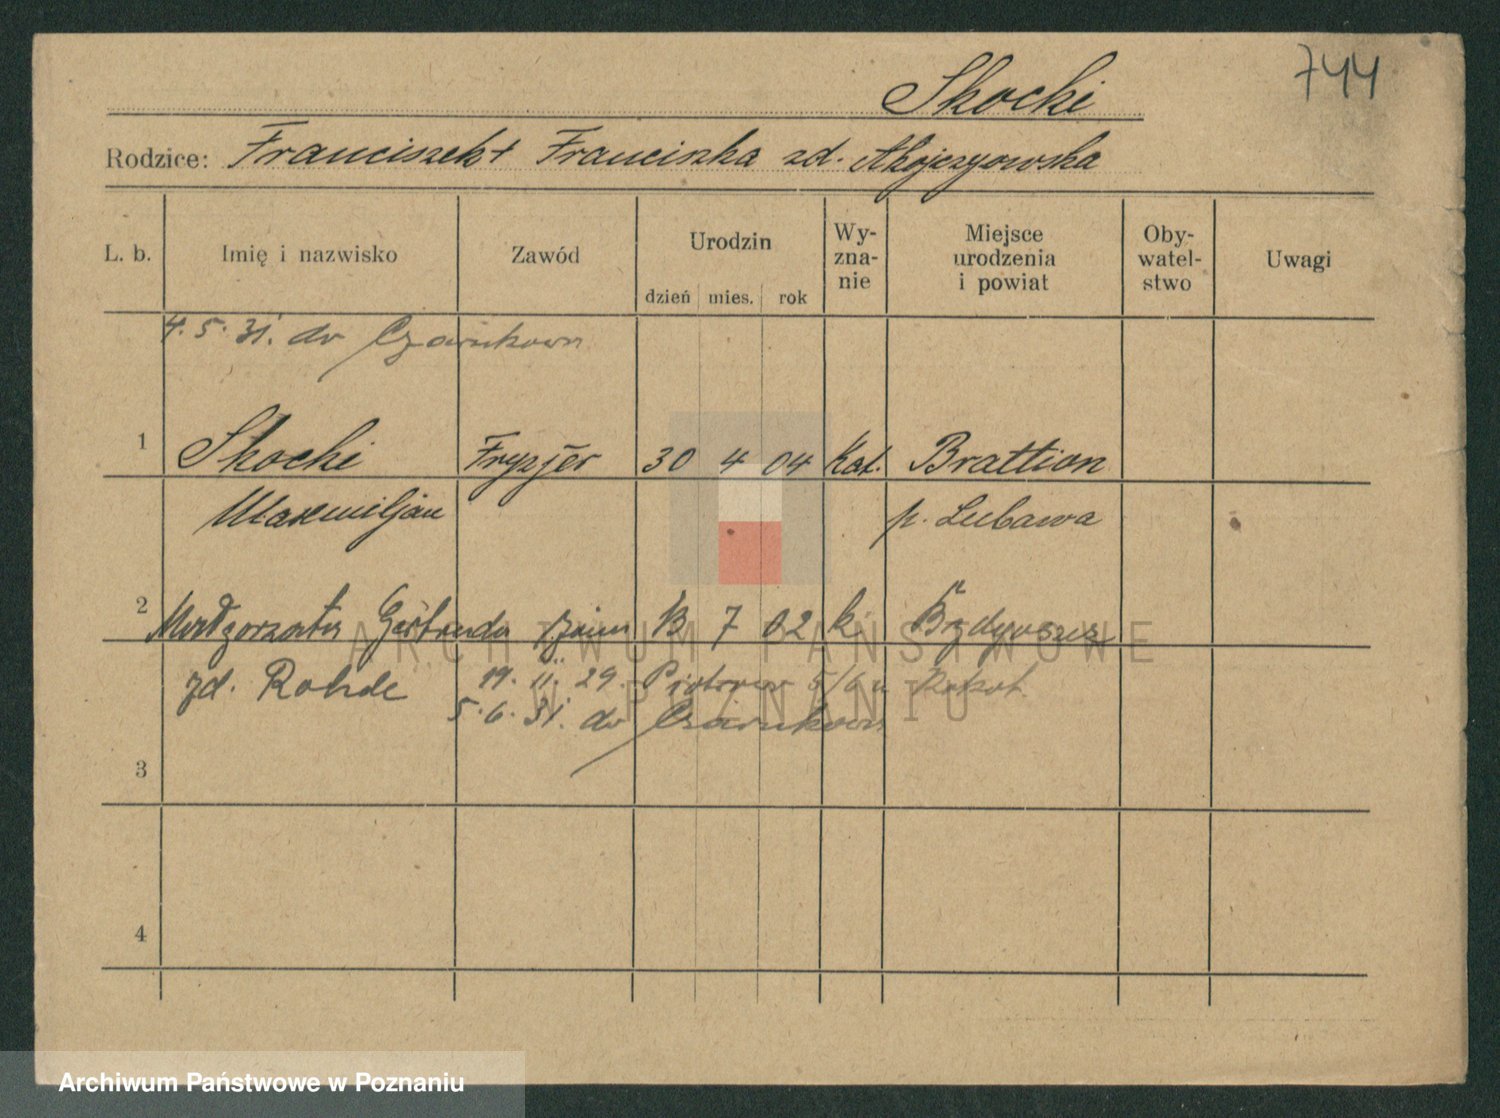 744
Skocki
Rodzice: Franciszek + Franciszka zd.
L. b. Imię i nazwisko Zawód Urodzin Wy-zna-nie Miejsce urodzenia i powiat Oby-watel-stwo Uwagi
dzień mies. rok
4. 5. 31. do Czarnkowa
1 Skocki Fryzjer 30 4 04 Kat. Brattion
Maxmiljan p. Lubawa
2 Małgorzata Gertruda 7 02 k. Bydgoszcz
zd. Rohde 19. 11. 29. Piotrowo 5/6 u
5. 6. 31. do Czarnkowa
3
4
ARCHIWUM PAŃSTWOWE
W POZNANIU
Archiwum Państwowe w Poznaniu